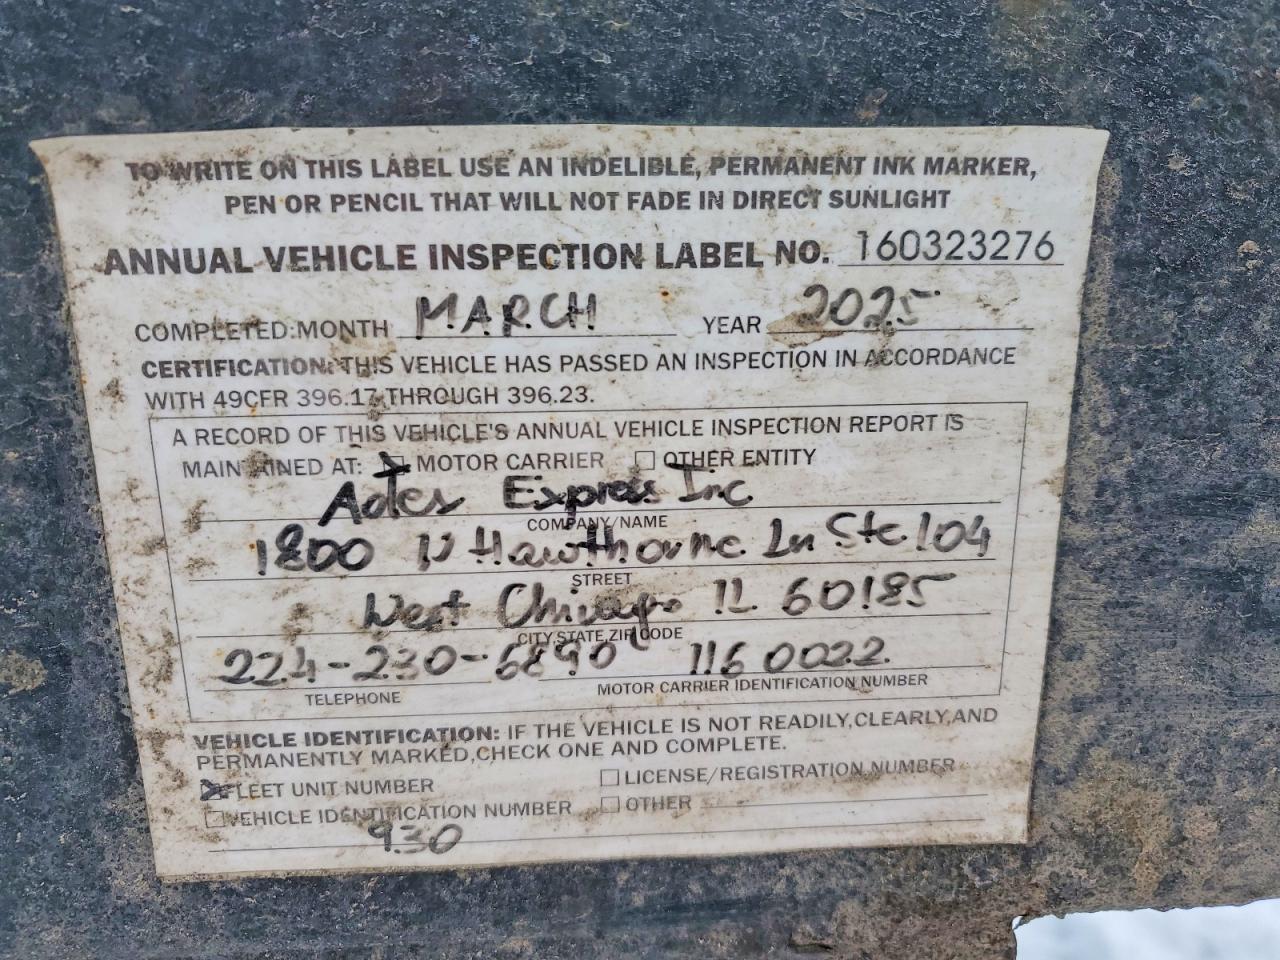 TO WRITE ON THIS LABEL USE AN INDELIBLE, PERMANENT INK MARKER,
PEN OR PENCIL THAT WILL NOT FADE IN DIRECT SUNLIGHT
ANNUAL VEHICLE INSPECTION LABEL NO. 160323276
COMPLETED: MONTH MARCH YEAR 2025
CERTIFICATION: THIS VEHICLE HAS PASSED AN INSPECTION IN ACCORDANCE
WITH 49CFR 396.17 THROUGH 396.23.
A RECORD OF THIS VEHICLE'S ANNUAL VEHICLE INSPECTION REPORT IS
MAINTAINED AT: MOTOR CARRIER OTHER ENTITY
Express Inc
COMPANY/NAME
1800 N Hawthorne Ln Ste 104
STREET
West Chicago IL 60185
CITY,STATE,ZIP CODE
224-230-6890 1160022
TELEPHONE MOTOR CARRIER IDENTIFICATION NUMBER
VEHICLE IDENTIFICATION: IF THE VEHICLE IS NOT READILY,CLEARLY,AND
PERMANENTLY MARKED,CHECK ONE AND COMPLETE.
FLEET UNIT NUMBER LICENSE/REGISTRATION NUMBER
VEHICLE IDENTIFICATION NUMBER OTHER
930